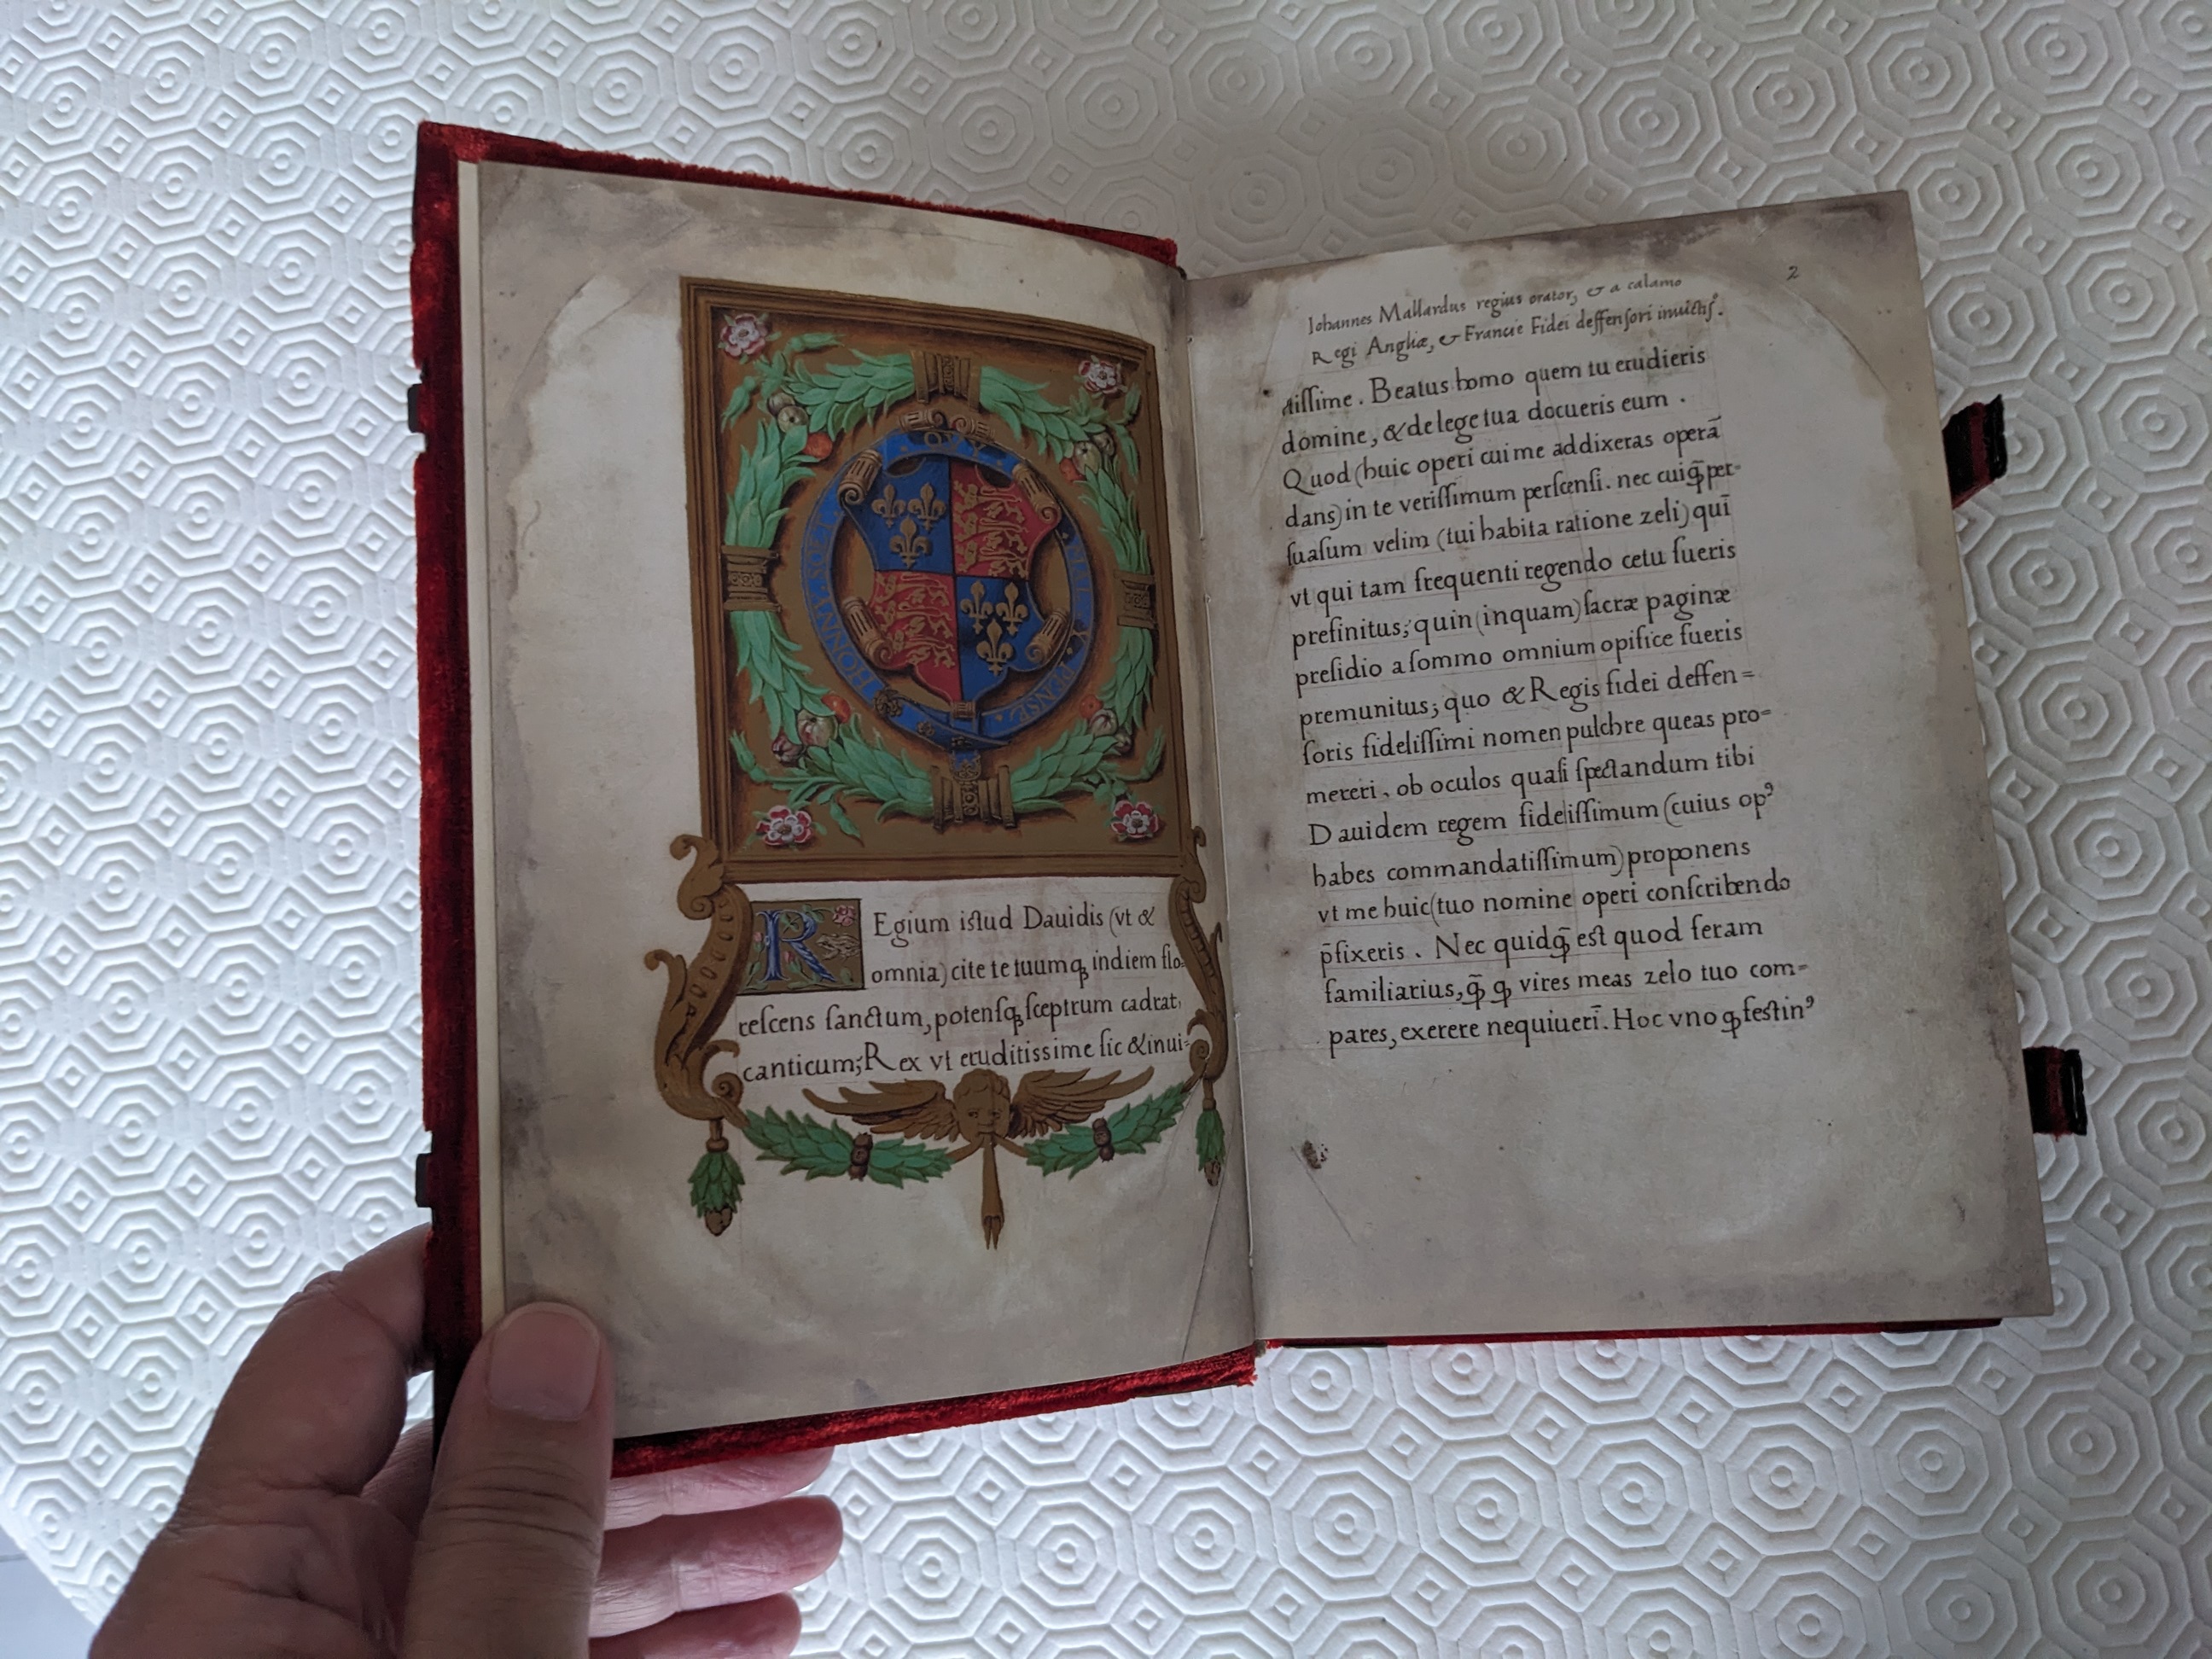 HONNY SOIT QVY MAL Y PENSE
R Egium istud Dauidis (vt &
omnia) cite te tuumqꝫ indiem flo-
rescens sanctum, potensqꝫ sceptrum cadrat,
canticum; Rex vt eruditissime sic & inui-
2
Iohannes Mallardus regius orator, & a calamo
Regi Angliæ, & Francie Fidei deffensori inuictiſ.
ctissime. Beatus homo quem tu erudieris
domine, & de lege tua docueris eum.
Quod (huic operi cui me addixeras operā
dans) in te verissimum persensi. nec cuiq̄ per-
suasum velim (tui habita ratione zeli) qui
vt qui tam frequenti regendo cetu fueris
prefinitus; quin (inquam) sacræ paginæ
presidio a sommo omnium opifice fueris
premunitus; quo & Regis fidei deffen=
soris fidelissimi nomen pulchre queas pro=
mereri. ob oculos quasi spectandum tibi
Dauidem regem fidelissimum (cuius opꝰ
habes commandatissimum) proponens
vt me huic (tuo nomine operi conscribendo
p̄fixeris. Nec quidq̄ est quod feram
familiarius, q̄ ꝙ vires meas zelo tuo com=
pares, exerere nequiueri. Hoc vno ꝙ festinꝰ